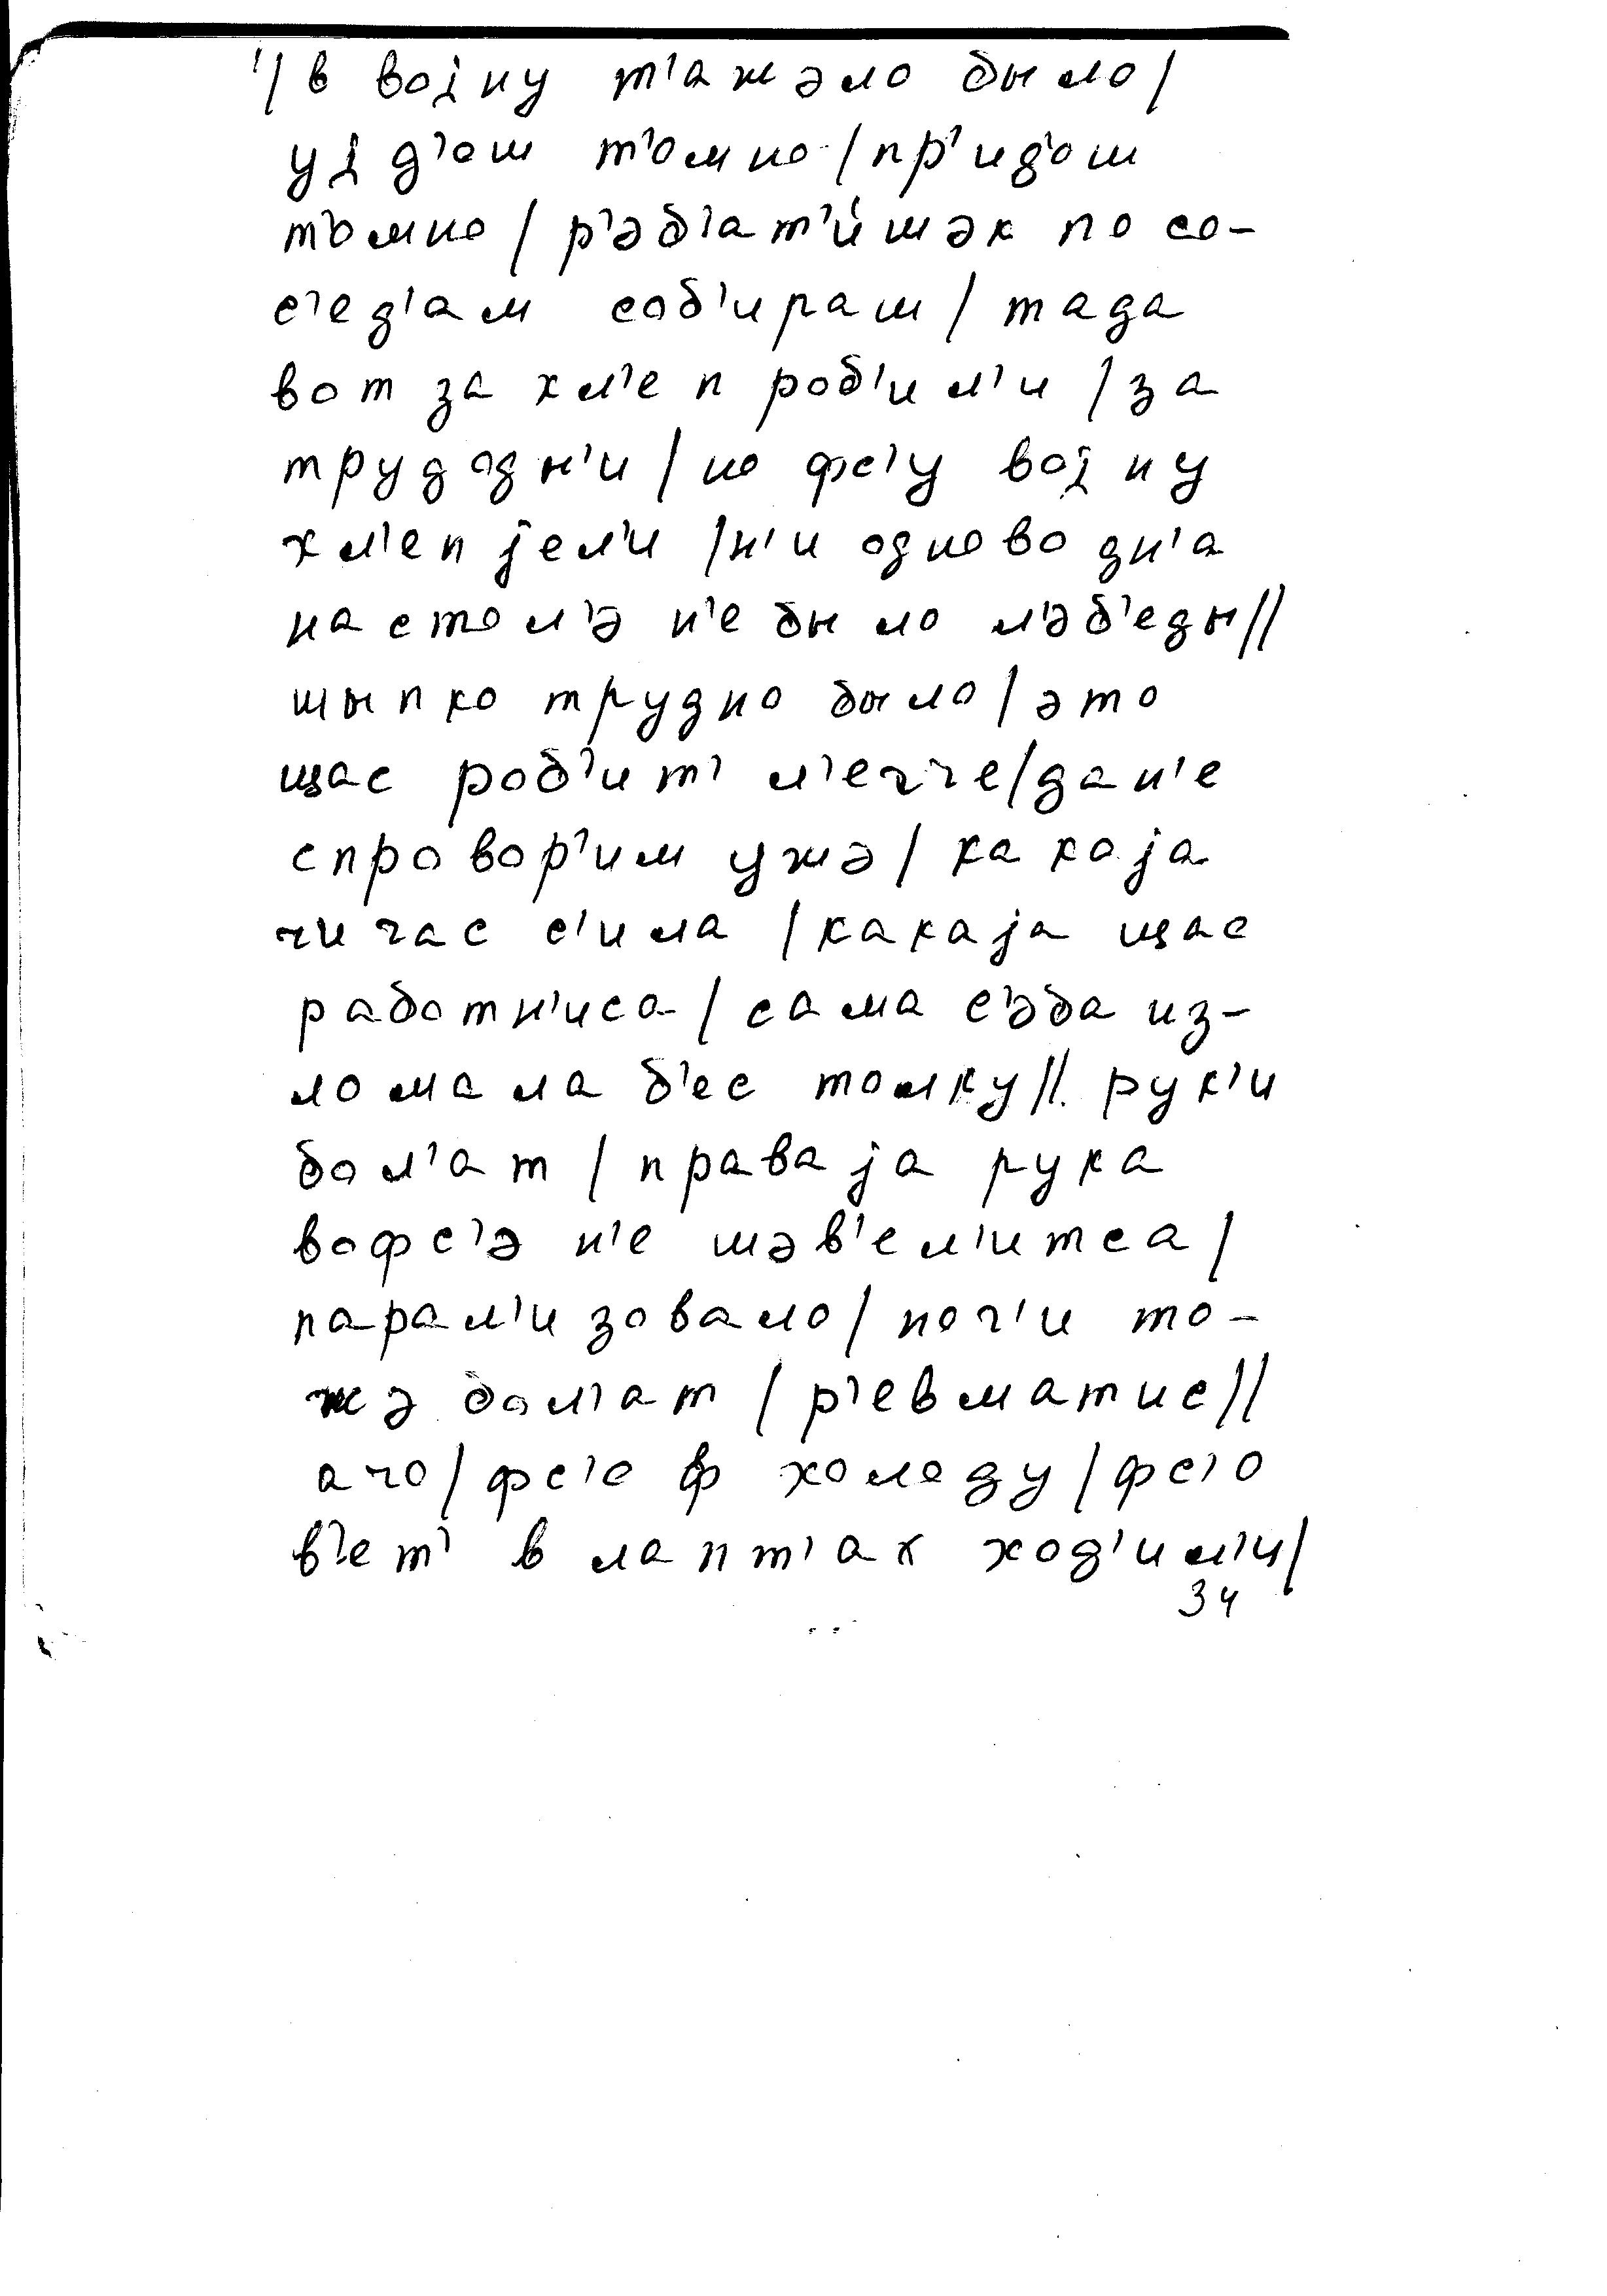 '/ в воįну т'ажэло было/
уįд'ош т'омно/пр'ид'ош
т'омно/р'эб'ат'ишэк по со-
с'ед'ам соб'ираш/тада
вот за хл'еп роб'ил'и/за
трудодн'и/но фс'у воįну
хл'еп јел'и/н'и одново дн'а
на стол'э н'е было л'эб'еды//
шыпко трудно было/это
щас роб'ит' л'егче/да н'е
спровор'им ужэ/какаја
чичас с'ила/какаја щас
работн'иса/сама с'эба из-
ломала б'ес толку// рук'и
бол'ат/праваја рука
вофс'э н'е шэв'ел'итса/
парал'изовало/ног'и то-
жэ бол'ат/р'евматис//
ачо/фс'о ф холоду/фс'о
в'ет' в лапт'ах ход'ил'и/
34